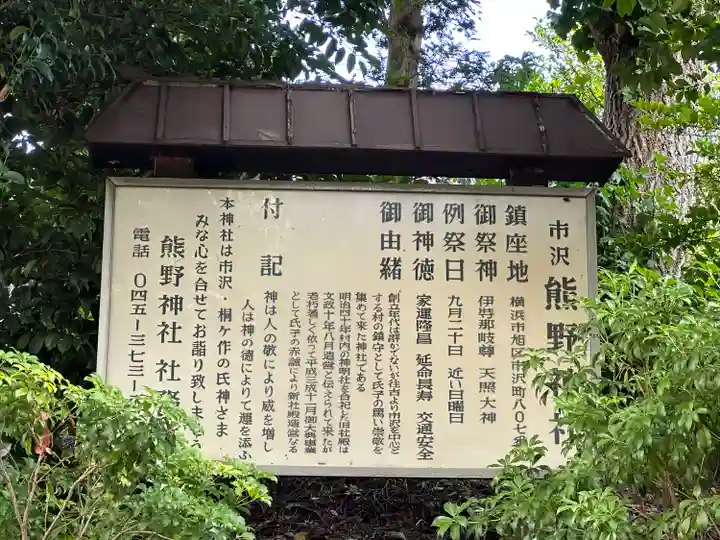 市沢 熊野神社
鎮座地 横浜市旭区市沢町八〇七
御祭神 伊弉那岐尊 天照大神
例祭日 九月二十日 近い日曜日
御神徳 家運隆昌 延命長寿 交通安全
御由緒 創立年代は詳かでないが往古より市沢を中心と
する村の鎮守として氏子の篤い崇敬を
集めて来た神社である
明治四十年村内の神明社を合祀し旧社殿は
文政十年八月造営と伝えられて来たが
老朽著しく依って平成三年十一月御大典事業
として氏子の赤誠により新社殿造営なる
付記 神は人の敬により威を増し
人は神の徳によりて運を添ふ
本神社は市沢・桐ヶ作の氏神さま
みな心を合せてお詣り致しましょう
熊野神社 社務
電話 〇四五ー三七三ー